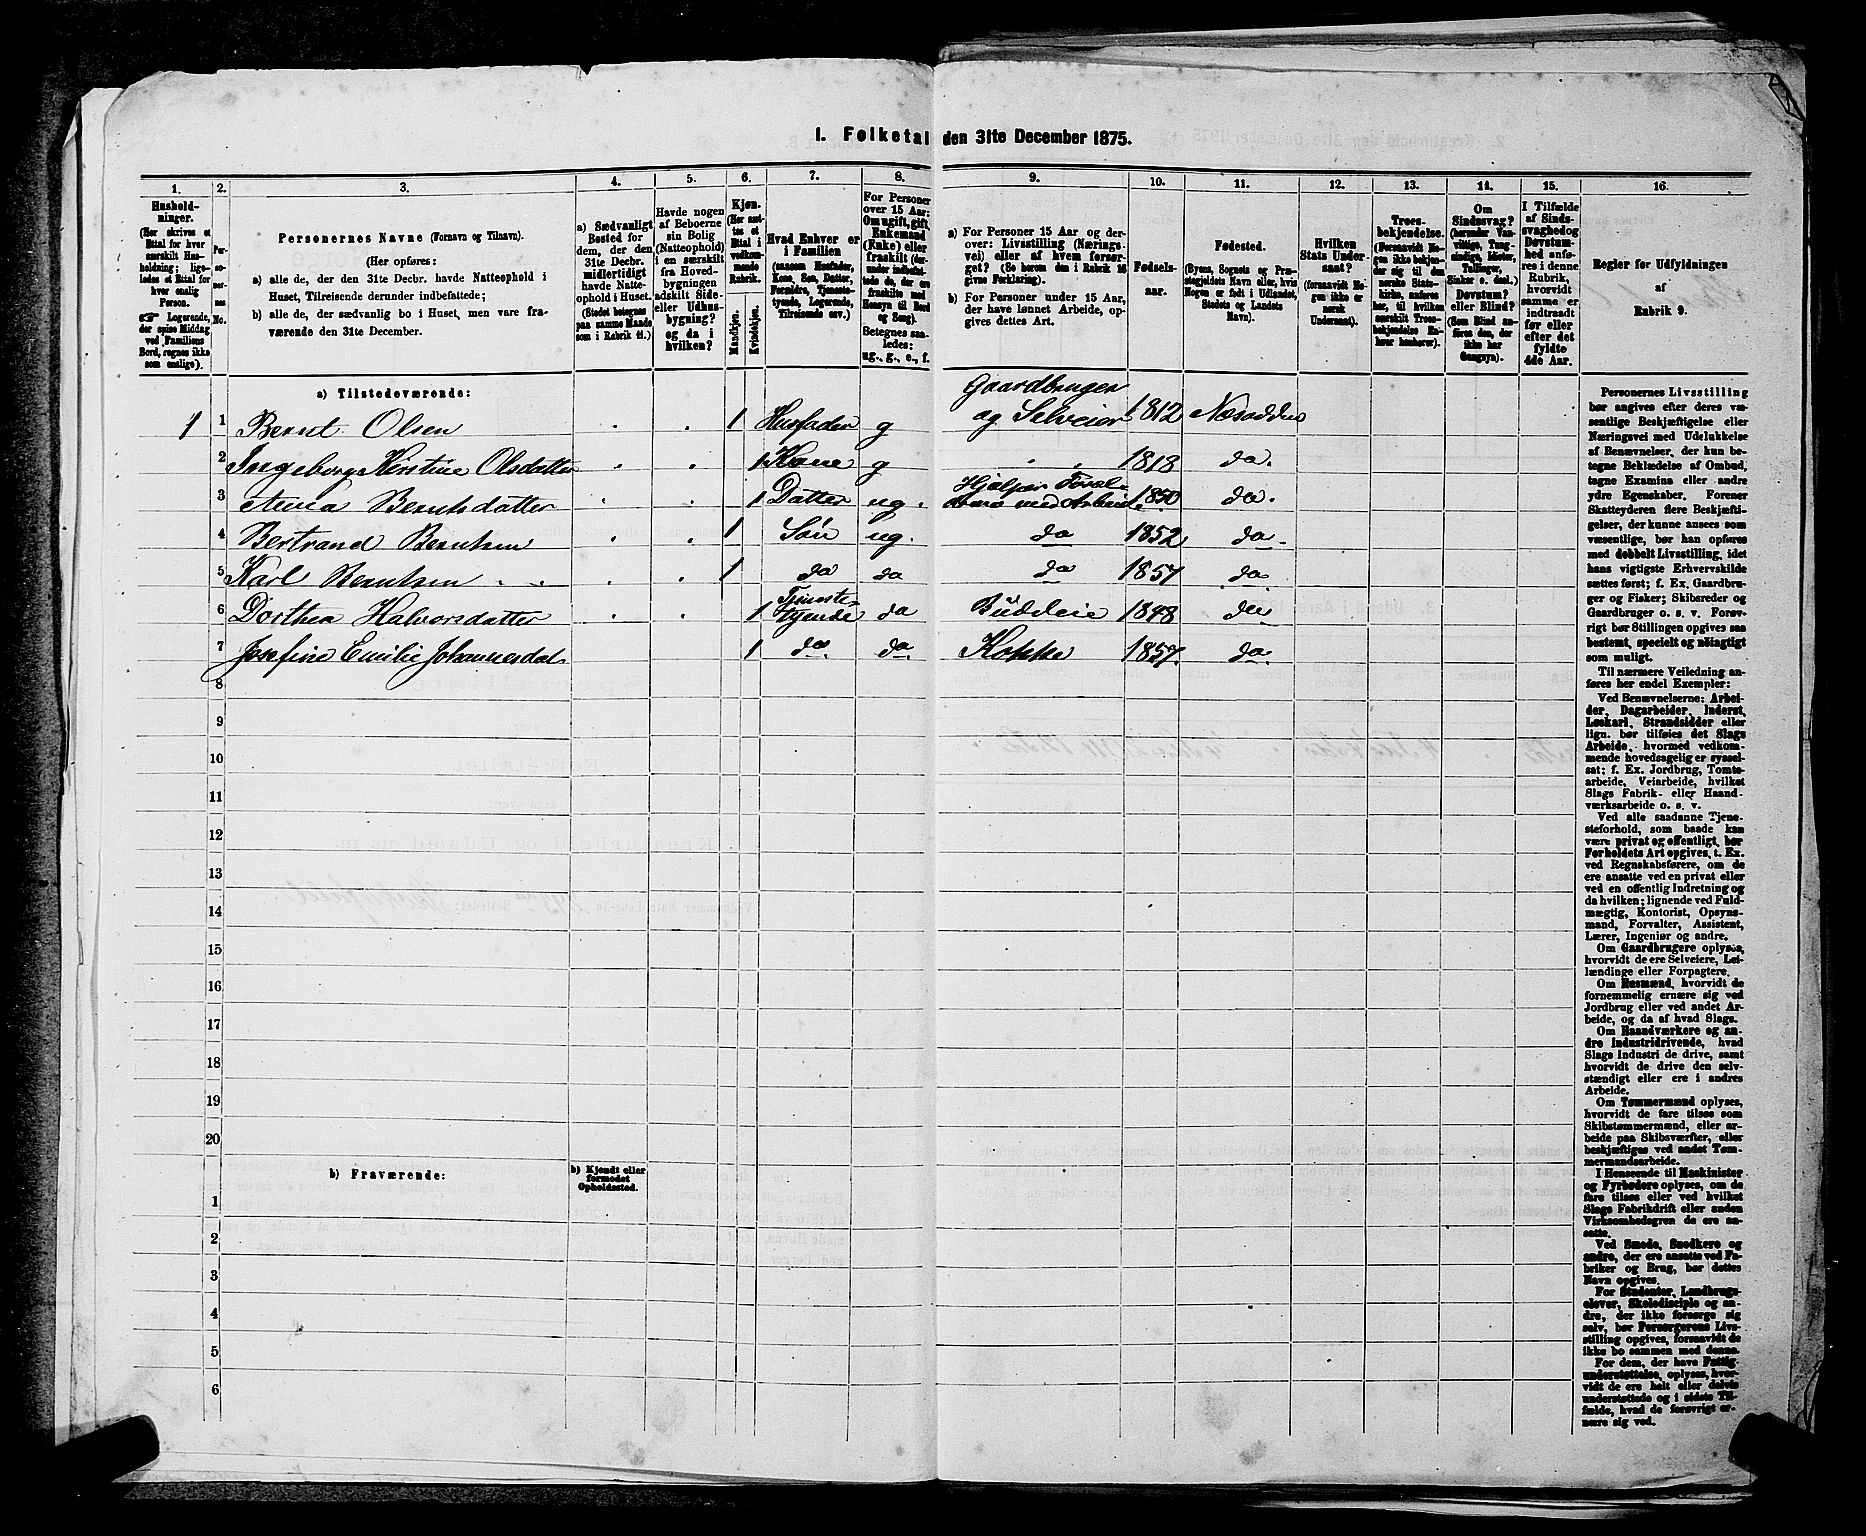 I. Folketal den 31te December 1875.
1. 2. 3. 4. 5. 6. 7. 8. 9. 10. 11. 12. 13. 14. 15. 16.
Hushold-
ninger.
(Her skrives et
Ettal for hver
særskilt Hus-
holdning; lige-
ledes et Ettal
for hver enslig
Person.
☛ Logerende,
der spise Middag
ved Familiens
Bord, regnes ikke
som enslige).
Per-
so-
ner-
nes
No.
Personernes Navne (Fornavn og Tilnavn).
(Her opføres:
a) alle de, der den 31te Decbr. havde Natteophold i
Huset, Tilreisende derunder indbefattede;
b) alle de, der sædvanlig bo i Huset, men vare fra-
værende den 31te December.
a) Sædvanligt
Bosted for
dem, der den
31te Decbr.
midlertidigt
havde Natte-
ophold i Huset.
(Stedet betegnes
paa samme Maade
som i Rubrik 11.)
Havde nogen
af Beboerne
sin Bolig
(Natteophold)
i en særskilt
fra Hoved-
bygningen
adskilt Side-
eller Udhus-
bygning?
og da i
hvilken?
Kjøn.
(Her sæt-
tes et
Ettal i
vedkom-
mende
Rubrik.
Mandkjøn.
Kvindekjøn.
Hvad Enhver er
i Familien
(saasom Husfader,
Kone, Søn, Datter,
Forældre, Tjeneste-
tyende, Logerende,
Tilreisende osv.)
For Personer
over 15 Aar:
Om ugift, gift,
Enkemand
(Enke) eller
fraskilt (der-
under indbefat-
tede de, der ere
fraskilte med
Hensyn til Bord
og Seng).
Betegnes saa-
ledes:
ug., g., e., f.
a) For Personer 15 Aar og der-
over: Livsstilling (Nærings-
vei) eller af hvem forsør-
get? (Se herom den i Rubrik 16
givne Forklaring).
b) For Personer under 15 Aar,
der have lønnet Arbeide, op-
gives dettes Art.
Fødsels-
aar.
Fødested.
(Byens, Sognets og Præ-
stegjeldets Navn eller, hvis
Nogen er født i Udlandet,
Stedets og Landets
Navn).
Hvilken
Stats Under-
saat?
(forsaavidt No-
gen ikke er
norsk
Undersaat).
Troes-
bekjendelse.
(Forsaavidt No-
gen ikke bekjen-
der sig til den
norske Stats-
kirke, anføres
her, til hvilken
særskilt Troes-
bekjendelse En-
hver henhører).
Om
Sindssvag?
(herunder Van-
vittige, Tung-
sindige, Idioter,
Tullinger,
Sinker o. desl.)
Døvstum?
eller Blind?
(Som Blind an-
føres den, der
ikke har
Gangsyn).
I Tilfælde
af Sinds-
svaghed og
Døvstum-
hed anfø-
res i denne
Rubrik,
hvorvidt
samme er
indtraadt
før eller
efter det
fyldte
4de Aar.
Regler for Udfyldningen
af
Rubrik 9.
a) Tilstedeværende:
1 1 Bernt Olsen . . 1 Husfader g Gaardbruger og Selveier 1812 Næsodden
2 Ingeborg Kirstine Olsdatter . . 1 Kone g . . 1818 do.
3 Anna Berntsdatter . . 1 Datter ug. Hjælper Foræl-
drene med Arbeid. 1850 do.
4 Bertrand Berntsen . . 1 Søn ug. do 1852 do.
5 Karl Berntsen . . 1 do do do 1857 do
6 Dorthea Halvorsdatter . . 1 Tjeneste-
tyende do Budeie 1848 do
7 Josefine Emilie Johannesdat 1 do. do. Kokke 1857. do.
8
9
10
11
12
13
14
15
16
17
18
19
20
b) Fraværende: b) Kjendt eller
formodet
Opholdssted.
1
2
3
4
5
6
Personernes Livsstilling
bør angives efter deres væ-
sentlige Beskjæftigelse eller
Næringsvei med Udelukkelse
af Benævnelser, der kun be-
tegne Beklædelse af Ombud,
tagne Examina eller andre
ydre Egenskaber. Forener
Skatteyderen flere Beskjæfti-
gelser, der kunne ansees som
væsentlige, bør han opføres
med dobbelt Livsstilling, idet
hans vigtigste Erhvervskilde
sættes først; f. Ex. Gaardbru-
ger og Fisker; Skibsreder og
Gaardbruger o. s. v. Forøv-
rigt bør Stillingen opgives saa
bestemt, specielt og nöiagtigt
som muligt.
Til nærmere Veiledning an-
føres her endel Exempler:
Ved Benævnelserne: Arbei-
der, Dagarbeider, Inderst,
Løskarl, Strandsidder eller
lign. bør tilføies det Slags
Arbeide, hvormed vedkom-
mende hovedsagelig er syssel-
sat; f. Ex. Jordbrug, Tomte-
arbeide, Veiarbeide, hvilket
Slags Fabrik- eller Haand-
værksarbeide o. s. v.
Ved alle saadanne Tjene-
steforhold, som baade kan
være privat og offentligt, bør
Forholdets Art opgives, t. Ex.
ved Regnskabsførere, om de
ere ansatte ved en privat eller
ved en offentlig Indretning og
da hvilken; lignende ved Fuld-
mægtig, Kontorist, Opsyns-
mand, Forvalter, Assistent,
Lærer, Ingeniør og andre.
Om Gaardbrugere oplyses,
hvorvidt de ere Selveiere, Lei-
lændinge eller Forpagtere.
Om Husmænd, hvorvidt de
fornemmelig ernære sig ved
Jordbrug eller ved andet Ar-
beide, og da af hvad Slags.
Om Haandværkere og an-
dre Industridrivende, hvad
Slags Industri de drive, samt
hvorvidt de drive den selv-
stændigt eller ere i andres
Arbeide.
Om Tømmermænd oplyses,
hvorvidt de fare tilsøs som
Skibstømmermænd, eller ar-
beide paa Skibsværfter, eller
beskjæftiges ved andet Tøm-
mermandsarbeide.
I Henseende til Maskinister
og Fyrbødere oplyses, om de
fare tilsøs eller ved hvilket
Slags Fabrikdrift eller anden
Virksomhedsgren de ere an-
satte.
Ved Smede, Snedkere og
andre, der ere ansatte ved Fa-
briker og Brug, bør dettes
Navn opgives.
For Studenter, Landbrugs-
elever, Skoledisciple og an-
dre, der ikke forsørge sig
selv, bør Forsørgerens Livs-
stilling opgives, forsaavidt de
ikke bo sammen med denne.
For dem, der have Fattig-
understøttelse, oplyses, hvor-
vidt de ere helt eller delvis
understøttede og i sidste Til-
fælde, hvad de forøvrigt er-
nære sig ved.